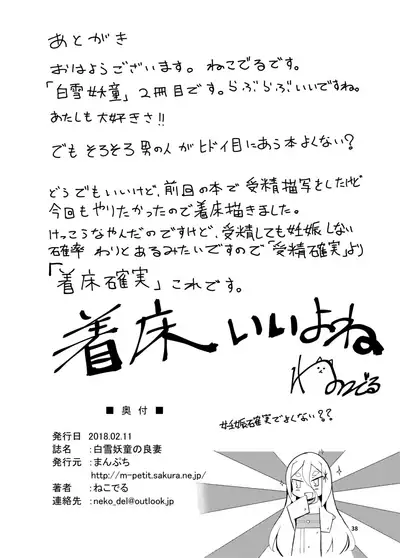 あとがき
おはようございます。ねこでるです。
「白雪妖童」2冊目です。らぶらぶいいですね。
あたしも大好きさ!!
でもそろそろ男の人がヒドイ目にあう本よくない?
どうでもいいけど、前回の本で受精描写をしたけど
今回もやりたかったので着床描きました。
けっこうなやんだのですけど、受精しても妊娠しない
確率 わりとあるみたいですので「受精確実」より
「着床確実」これです。
着床いいよね
ねこでる
■ 奥付 ■
発行日 2018.02.11
誌名:白雪妖童の良妻
発行元:まんぷち
http://m-petit.sakura.ne.jp/
著者:ねこでる
連絡先:neko_del@outlook.jp
妊娠確実でよくない??
38